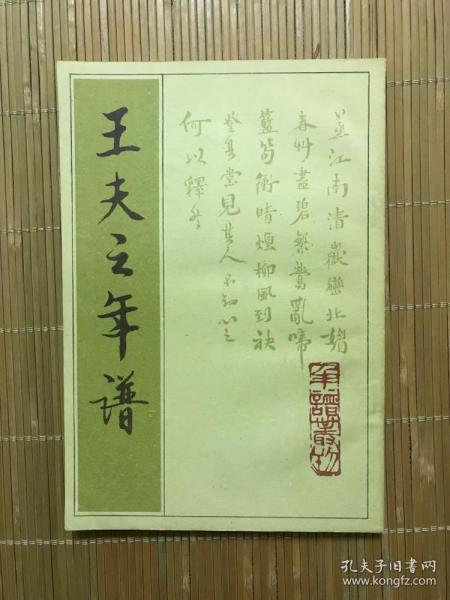 王夫之年谱
江南清嶽巒北
春艸盡碧繁鶯亂啼
藍筍衝晴煙柳風到袂
登其堂見其人不知心之
何以釋
年譜叢刊
孔夫子旧书网
www.kongfz.com